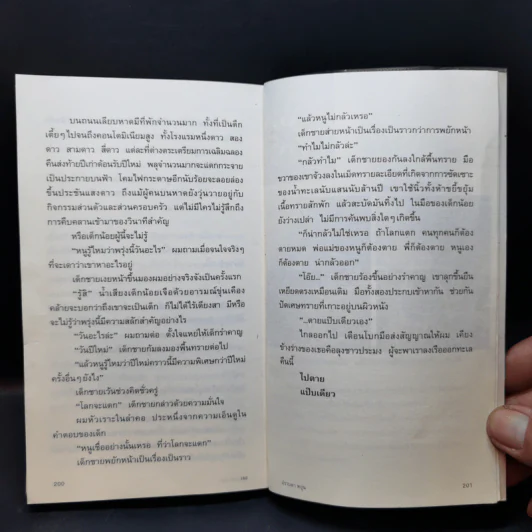 บนถนนเลียบหาดมีที่พักจำนวนมาก ทั้งที่เป็นตึก
เตี้ยๆ ไปจนถึงคอนโดมิเนียมสูง ทั้งโรงแรมหนึ่งดาว สอง
ดาว สามดาว สี่ดาว แต่ละที่ต่างตระเตรียมการเฉลิมฉลอง
คืนส่งท้ายปีเก่าต้อนรับปีใหม่ พลุจำนวนมากจะแตกกระจาย
เป็นประกายบนฟ้า โคมไฟกระดาษอีกนับร้อยจะลอยล่อง
ขึ้นประชันแสงดาว ถึงแม้ผู้คนบนหาดยังวุ่นวายอยู่กับ
กิจกรรมส่วนตัวและส่วนครอบครัว แต่ไม่มีใครไม่รู้สึกถึง
การคืบคลานเข้ามาของวินาทีสำคัญ
หรือเด็กน้อยผู้นี้จะไม่รู้
"หนูรู้ไหมว่าพรุ่งนี้วันอะไร" ผมถามเมื่อจนใจจริงๆ
ที่จะเดาว่าเขาหาอะไรอยู่
เด็กชายเงยหน้าขึ้นมองผมอย่างจริงจังเป็นครั้งแรก
"รู้สิ" น้ำเสียงเด็กน้อยเจือด้วยอารมณ์ขุ่นเคือง
คล้ายจะบอกว่าถึงเขาจะเป็นเด็ก ก็ไม่ได้ไร้เดียงสา มีหรือ
จะไม่รู้ว่าพรุ่งนี้มีความสลักสำคัญอย่างไร
"วันอะไรล่ะ" ผมถามต่อ ตั้งใจแหย่ให้เด็กรำคาญ
"วันปีใหม่" เด็กชายก้มลงมองพื้นทรายต่อไป
"แล้วหนูรู้ไหมว่าปีใหม่คราวนี้มีความพิเศษกว่าปีใหม่
ครั้งอื่นๆ ยังไง"
เด็กชายเว้นช่วงคิดชั่วครู่
"โลกจะแตก" เด็กชายกล่าวด้วยความมั่นใจ
ผมหัวเราะในลำคอ ประหนึ่งจากความเอ็นดูใน
คำตอบของเด็ก
"หนูเชื่ออย่างนั้นเหรอ ที่ว่าโลกจะแตก"
เด็กชายพยักหน้าเป็นเรื่องเป็นราว
200
"แล้วหนูไม่กลัวเหรอ"
เด็กชายส่ายหน้าเป็นเรื่องเป็นราวกว่าการพยักหน้า
"ทำไมไม่กลัวล่ะ"
"กลัวทำไม" เด็กชายย่อกันลงใกล้พื้นทราย มือ
ขวาของเขาจ้วงลงในเม็ดทรายละเอียดที่เกิดจากการซัดเซาะ
ของน้ำทะเลนับแสนนับล้านปี เขาใช้นิ้วทั้งห้าขยี้ขยุ้ม
เนื้อทรายสักพัก แล้วสะบัดมันทิ้งไป ในมือของเด็กน้อย
ยังว่างเปล่า ไม่มีการค้นพบสิ่งใดๆ เกิดขึ้น
"ก็น่ากลัวไม่ใช่เหรอ ถ้าโลกแตก คนทุกคนก็ต้อง
ตายหมด พ่อแม่ของหนูก็ต้องตาย พี่ก็ต้องตาย หนูเอง
ก็ต้องตาย น่ากลัวออก"
"โอ๊ย.." เด็กชายร้องขึ้นอย่างรำคาญ เขาลุกขึ้นยืน
เหยียดตรงเหมือนเดิม มือทั้งสองประกบเข้าหากัน ช่วยกัน
ปัดเศษทรายที่เกาะอยู่บนผิวหนัง
"..ตายแป๊บเดียวเอง"
ไกลออกไป เดือนโบกมือส่งสัญญาณให้ผม เคียง
ข้างร่างของเธอคือลุงชาวประมง ผู้จะพาเราลงเรือออกทะเล
คืนนี้
ไปตาย
แป๊บเดียว
201